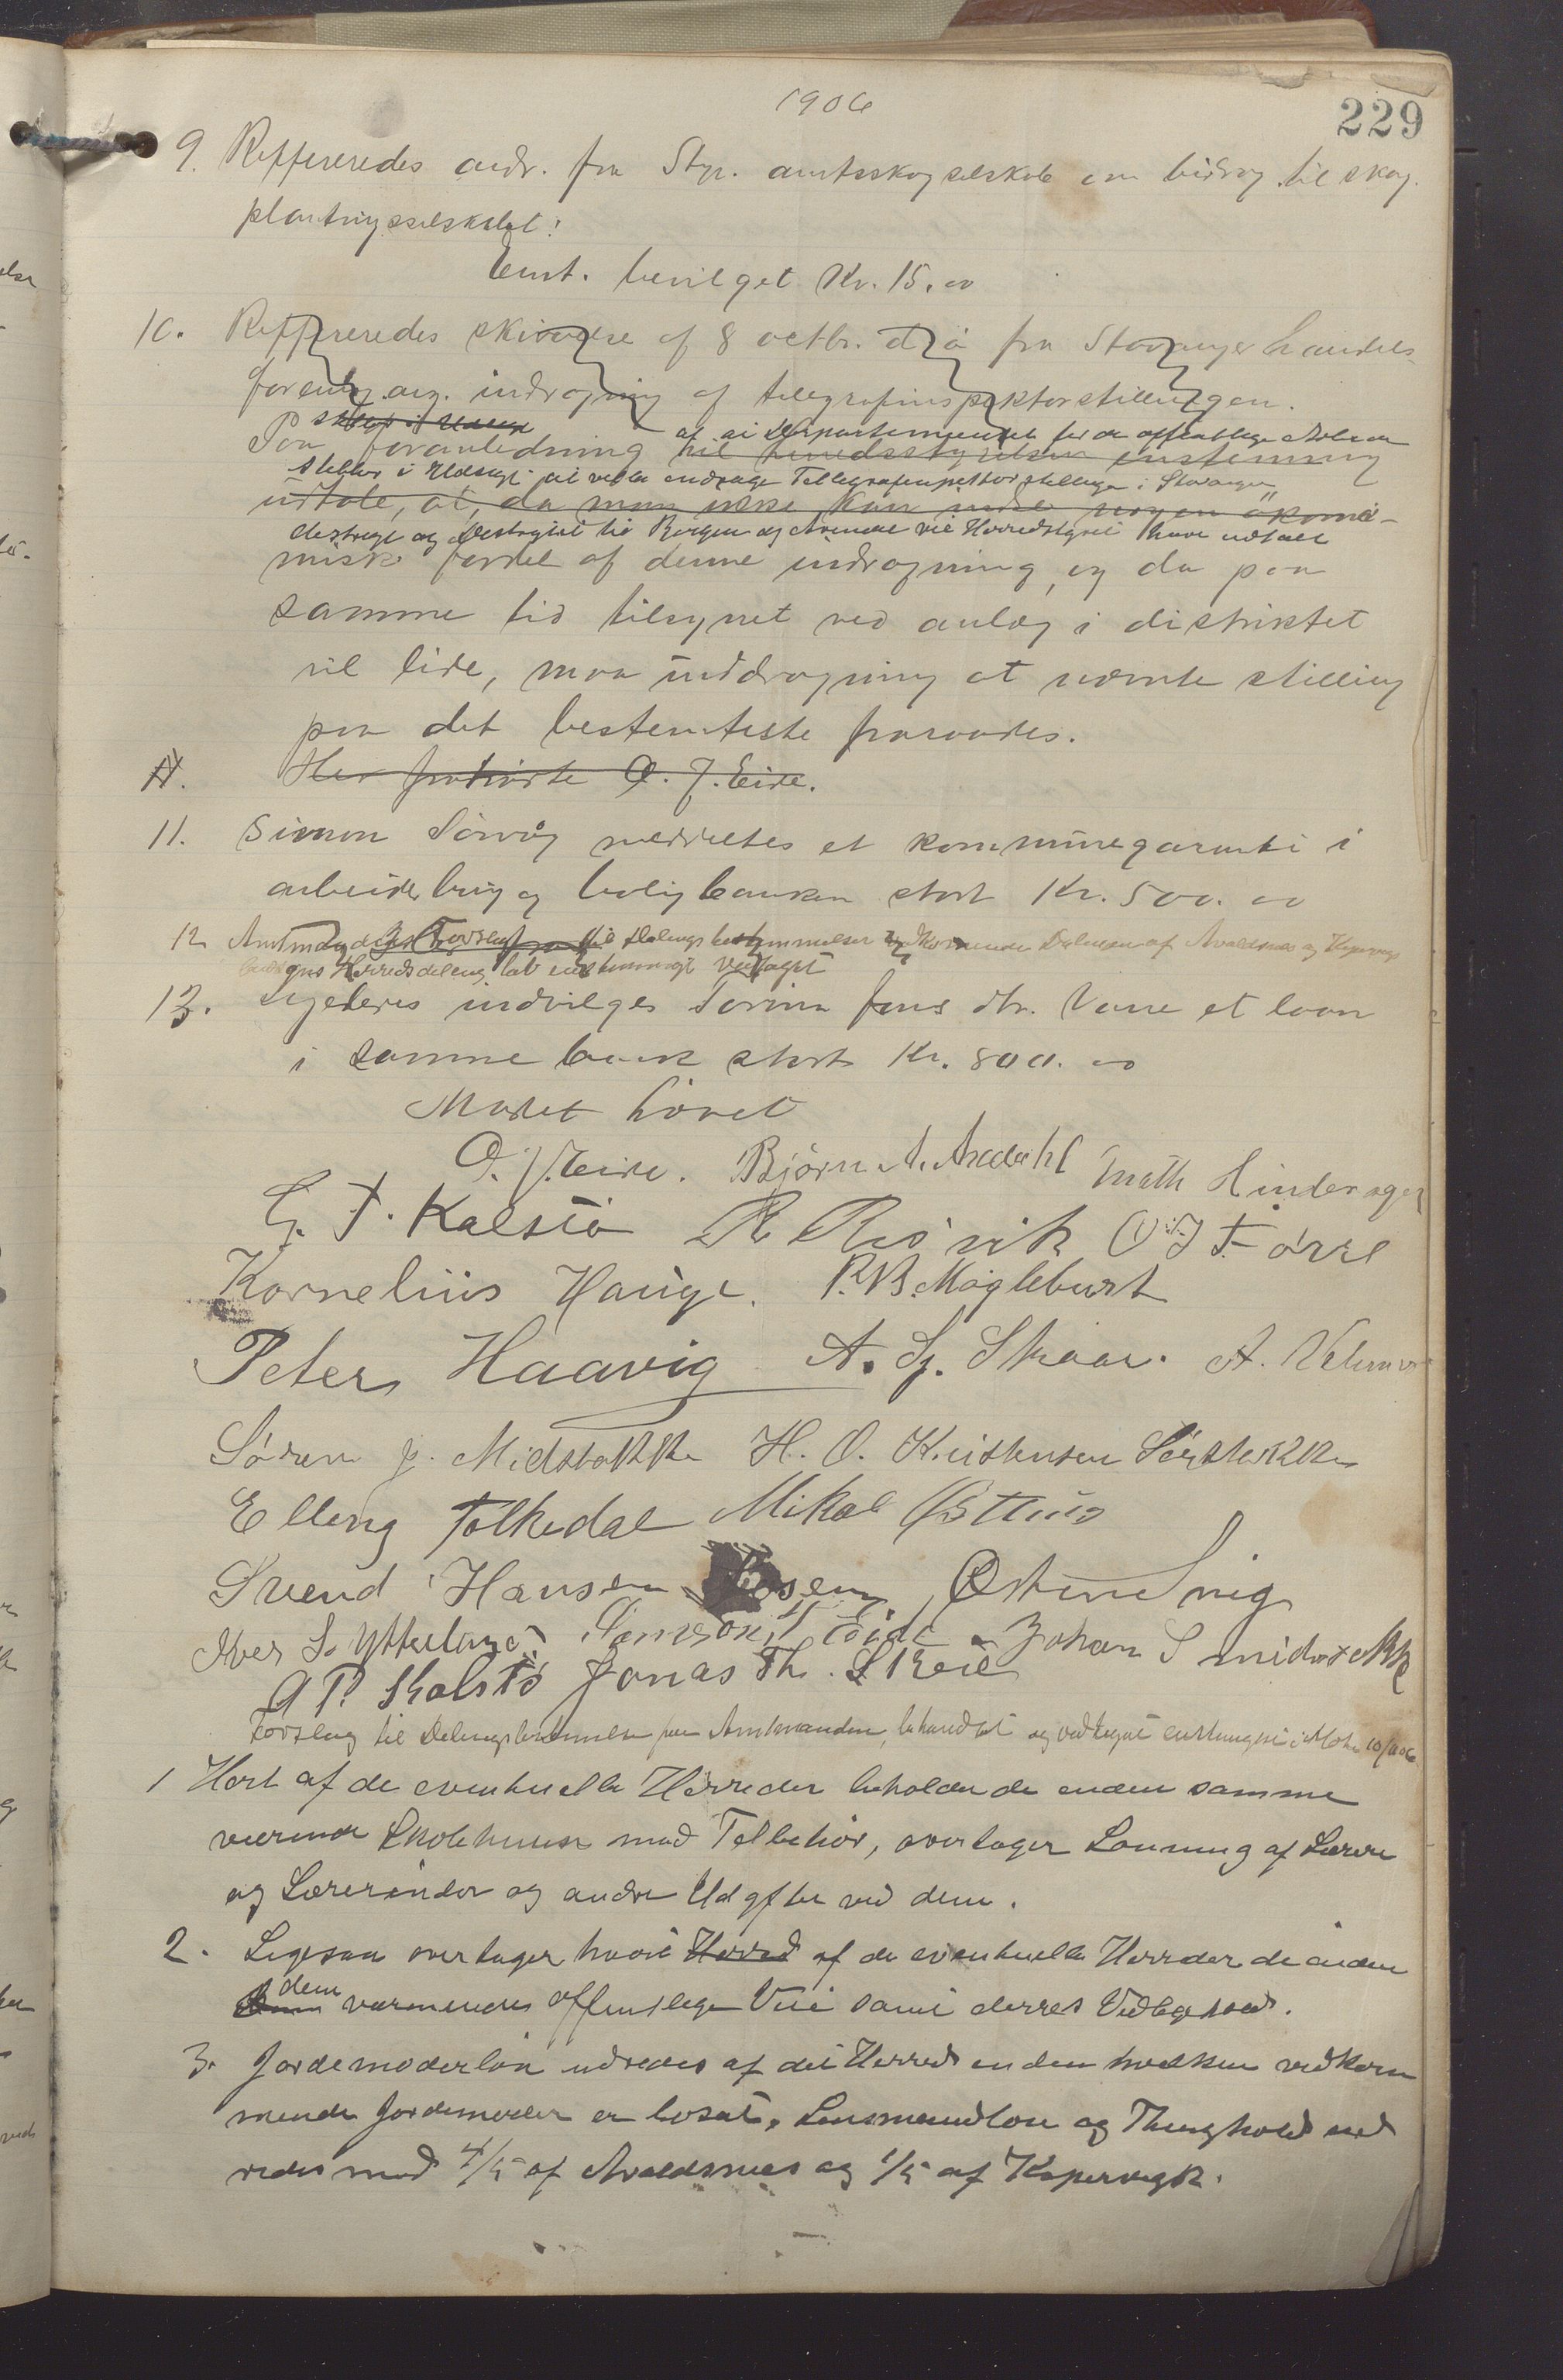 1906
229
9. Reffereredes andr. fra Stgr. amtsskogselskab om bidrag til skog.
plantningsselskabet:
Enst. bevilget Kr. 15.00
10. Reffereredes skrivelse af 8 octbr. d. å fra Stavanger handels-
forening ang. inddragning af telegrafinspektørstillingen.
af at Departementet for de offentlige Arbeider
Paa foranledning vil herredsstyrelsen enstemmig
stiller i Udsigt at ville inddrage Tellegrafinspektørstillingen i Stavanger
udtale, at, da man ikke kan indse nogen økono-
distrigt og Distrigtet til Bergen og Arendal vil Herredstyret have udtalt
misk fordel af denne inddragning, og da paa
samme tid tilsynet ved anlæg i distriktet
vil lide, maa inddragning at nævnte stilling
paa det bestemteste fraraades.
11. Her fratraadte O. J. Eide.
11. Simon Sørvåg meddeltes et kommunegaranti i
arbeiderbrug og boligbanken stort Kr. 500.00
12 Amtmandens Forslag til Delings bestemmelser vedkommende Delingen af Avaldsnes og Kopervigs
Herredsdeling blev enstemmigt vedtaget
13. Ligeledes indvilges Torina Jens dtr. Vane et laan
i samme bank stort Kr. 800.00
Mødet hævet
O. J. Eide. Bjørn A. Aredahl Math Hinderager
G. T. Kalstø R Risvik O J Førre
Kornelius Hauge. P. B. Mogleburst
Peter Haavig A. Sj. Skaar. A. Velura
Søren J. Midtbøkke H. O. Kristensen Sørstokke
Elleng Folkedal Mikal Østhus
Svend Hansen Østen Snig
Iver S. Ytreland Simson H Eide Johan S midstokke
G P. Kalstø Jonas Th. Skeie
Forslag til Delingsbestemmelse fra Amtmanden, behandlet og vedtaget enstemmigt i Møde 10/11 06
1 Hvert af de eventuelle Herreder beholder de inden samme
værende Skolehuuse med Tilbehør, overtager Lønning af Lærere
og Lærerinder og andre Udgifter ved dem.
2. Ligesaa overtager hvert Herred af de eventuelle Herreder de inden
dem værmendes offentlige Veie samt derres Vedligehold.
3. Jordemoderløn udredes af det Herred inden hvilken vedkom
mende Jordemoder er bosat. Lensmandløn og Thinghold ud
redes med 4/5 af Avaldsnes og 1/5 af Kopervigk.